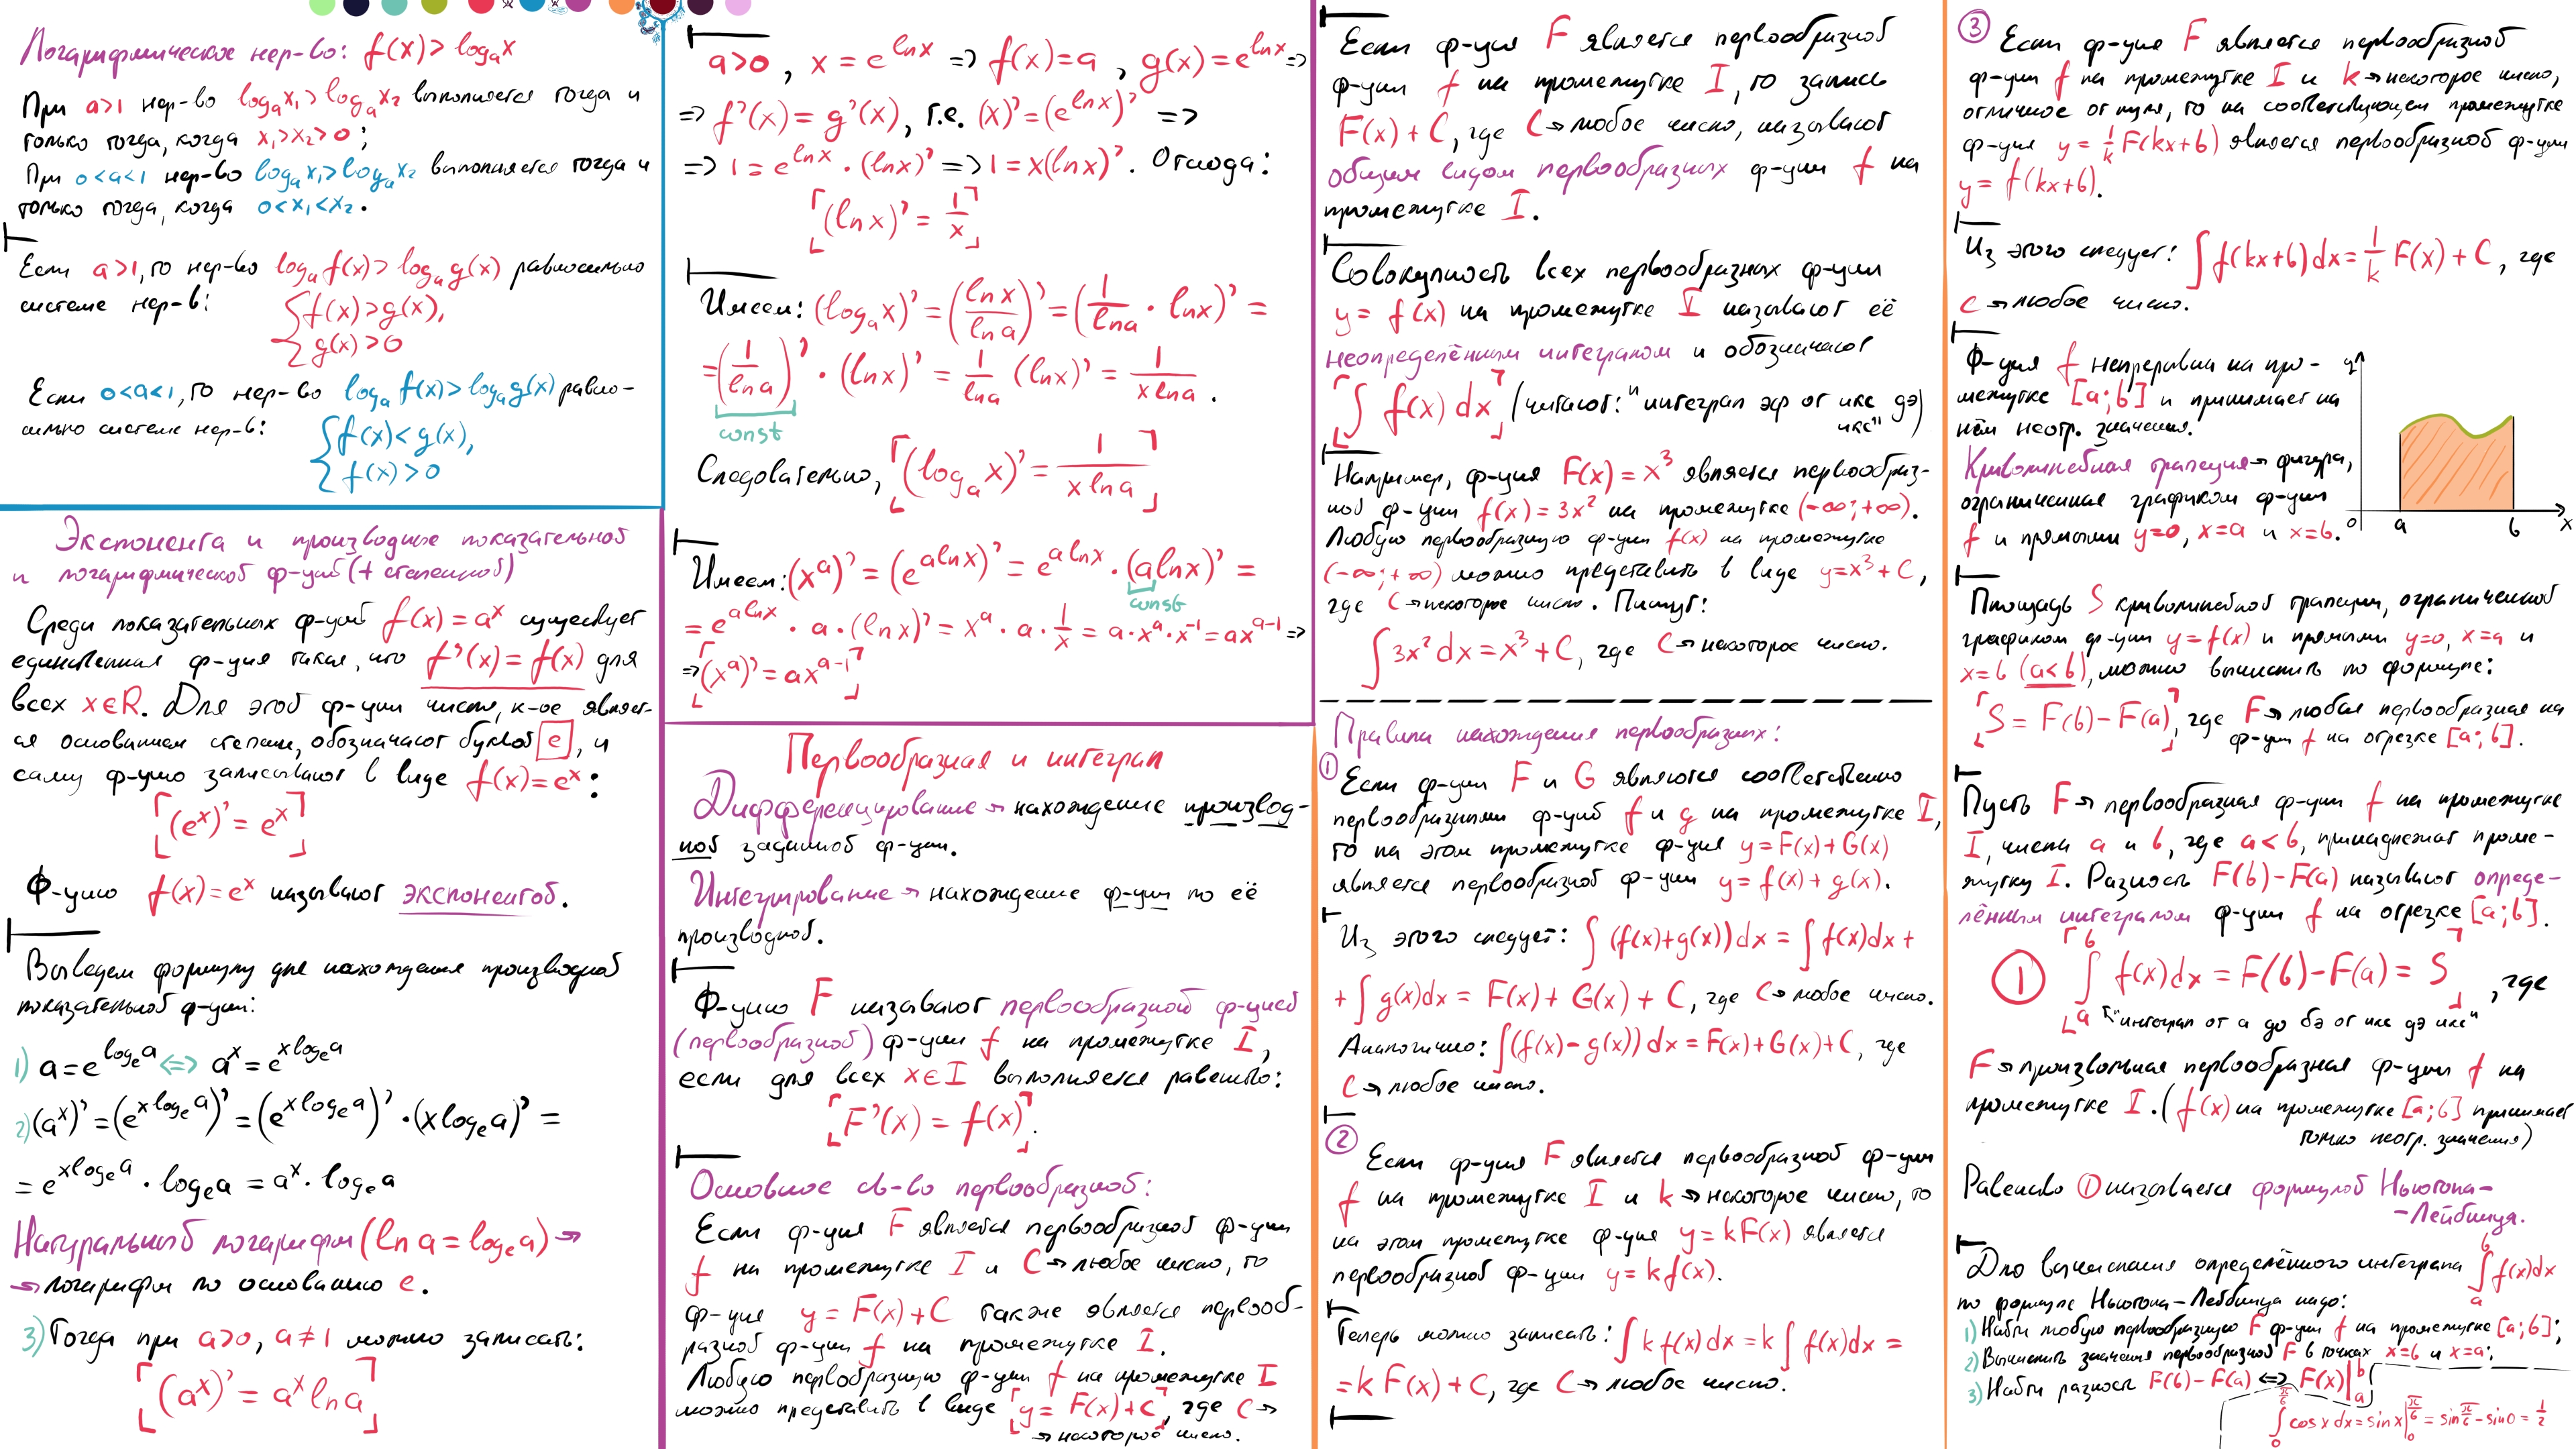 Логарифмическое нер-во: f(x) > logₐx
При a>1 нер-во logₐx₁ > logₐx₂ выполняется тогда и
только тогда, когда x₁>x₂>0;
При 0<a<1 нер-во logₐx₁>logₐx₂ выполняется тогда и
только тогда, когда 0<x₁<x₂.
Если a>1, то нер-во logₐf(x) > logₐg(x) равносильно
системе нер-в:
{f(x)>g(x),
g(x)>0
Если 0<a<1, то нер-во logₐf(x)>logₐg(x) равно-
сильно системе нер-в:
{f(x)<g(x),
f(x)>0
Экспонента и производные показательной
и логарифмической ф-ций (+ степенной)
Среди показательных ф-ций f(x) = aˣ существует
единственная ф-ция такая, что f'(x) = f(x) для
всех x∈R. Для этой ф-ции число, к-ое являет-
ся основанием степени, обозначают буквой e, и
саму ф-цию записывают в виде f(x)=eˣ:
(eˣ)' = eˣ
Ф-цию f(x)=eˣ называют экспонентой.
Выведем формулу для нахождения производной
показательной ф-ции:
1) a = e^(logₑa) <=> aˣ = e^(x logₑa)
2) (aˣ)' = (e^(x logₑa))' = (e^(x logₑa))' · (x logₑa)' =
= e^(x logₑa) · logₑa = aˣ · logₑa
Натуральный логарифм (ln a = logₑa) →
→ логарифм по основанию e.
3) Тогда при a>0, a≠1 можно записать:
(aˣ)' = aˣ ln a
a>0, x = e^(ln x) => f(x)=a, g(x)=e^(ln x) =>
=> f'(x) = g'(x), т.е. (x)' = (e^(ln x))' =>
=> 1 = e^(ln x) · (ln x)' => 1 = x(ln x)'. Отсюда:
(ln x)' = 1/x
Имеем: (logₐx)' = (ln x / ln a)' = (1/ln a · ln x)' =
= (1/ln a)' · (ln x)' = 1/ln a (ln x)' = 1/(x ln a).
const
Следовательно, (logₐx)' = 1/(x ln a)
Имеем: (xᵃ)' = (e^(a ln x))' = e^(a ln x) · (a ln x)' =
const
= e^(a ln x) · a · (ln x)' = xᵃ · a · 1/x = a · xᵃ · x⁻¹ = axᵃ⁻¹ =>
=> (xᵃ)' = axᵃ⁻¹
Первообразная и интеграл
Дифференцирование → нахождение производ-
ной заданной ф-ции.
Интегрирование → нахождение ф-ции по её
производной.
Ф-цию F называют первообразной ф-цией
(первообразной) ф-ции f на промежутке I,
если для всех x∈I выполняется равенство:
F'(x) = f(x).
Основное св-во первообразной:
Если ф-ция F является первообразной ф-ции
f на промежутке I и C → любое число, то
ф-ция y = F(x)+C также является первооб-
разной ф-ции f на промежутке I.
Любую первообразную ф-ции f на промежутке I
можно представить в виде y = F(x)+C, где C →
→ некоторое число.
Если ф-ция F является первообразной
ф-ции f на промежутке I, то запись
F(x) + C, где C → любое число, называют
общим видом первообразных ф-ции f на
промежутке I.
Совокупность всех первообразных ф-ции
y = f(x) на промежутке I называют её
неопределённым интегралом и обозначают
∫ f(x) dx (читают: "интеграл эф от икс дэ
икс")
Например, ф-ция F(x) = x³ является первообраз-
ной ф-ции f(x) = 3x² на промежутке (-∞; +∞).
Любую первообразную ф-ции f(x) на промежутке
(-∞; +∞) можно представить в виде y=x³+C,
где C → некоторое число. Пишут:
∫ 3x² dx = x³ + C, где C → некоторое число.
Правила нахождения первообразных:
① Если ф-ции F и G являются соответственно
первообразными ф-ций f и g на промежутке I,
то на этом промежутке ф-ция y = F(x) + G(x)
является первообразной ф-ции y = f(x) + g(x).
Из этого следует: ∫ (f(x)+g(x)) dx = ∫ f(x)dx +
+ ∫ g(x)dx = F(x) + G(x) + C, где C → любое число.
Аналогично: ∫(f(x) – g(x)) dx = F(x)+G(x)+C, где
C → любое число.
② Если ф-ция F является первообразной ф-ции
f на промежутке I и k → некоторое число, то
на этом промежутке ф-ция y = kF(x) является
первообразной ф-ции y = kf(x).
Теперь можно записать: ∫ k f(x) dx = k ∫ f(x)dx =
= k F(x) + C, где C → любое число.
③ Если ф-ция F является первообразной
ф-ции f на промежутке I и k → некоторое число,
отличное от нуля, то на соответствующем промежутке
ф-ция y = 1/k F(kx+b) является первообразной ф-ции
y = f(kx+b).
Из этого следует: ∫ f(kx+b) dx = 1/k F(x) + C, где
C → любое число.
Ф-ция f непрерывна на про-
межутке [a; b] и принимает на
нём неотр. значения.
Криволинейная трапеция → фигура,
ограниченная графиком ф-ции
f и прямыми y=0, x=a и x=b.
y
0 a b x
Площадь S криволинейной трапеции, ограниченной
графиком ф-ции y = f(x) и прямыми y=0, x=a и
x=b (a<b), можно вычислить по формуле:
S = F(b) – F(a), где F → любая первообразная на
ф-ции f на отрезке [a; b].
Пусть F → первообразная ф-ции f на промежутке
I, числа a и b, где a < b, принадлежат проме-
жутку I. Разность F(b) – F(a) называют опреде-
лённым интегралом ф-ции f на отрезке [a; b].
① ∫ₐᵇ f(x) dx = F(b) – F(a) = S, где
"интеграл от а до бэ от икс дэ икс"
F → произвольная первообразная ф-ции f на
промежутке I. (f(x) на промежутке [a; b] принимает
только неотр. значения)
Равенство ① называется формулой Ньютона–
–Лейбница.
Для вычисления определённого интеграла ∫ₐᵇ f(x)dx
по формуле Ньютона–Лейбница надо:
1) Найти любую первообразную F ф-ции f на промежутке [a; b];
2) Вычислить значения первообразной F в точках x=b и x=a;
3) Найти разность F(b) – F(a) <=> F(x)|ₐᵇ
∫₀^(π/6) cos x dx = sin x|₀^(π/6) = sin π/6 – sin 0 = 1/2